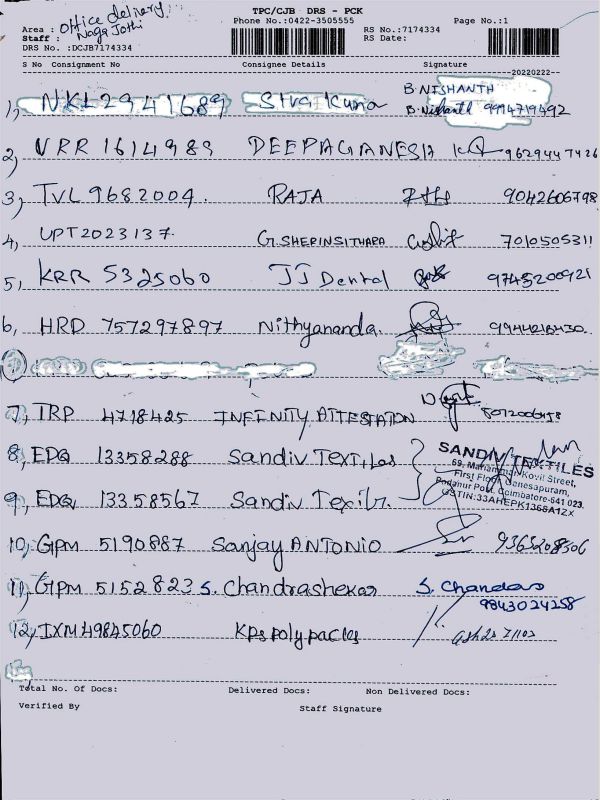 TPC/CJB DRS - PCK
Area : Office delivery
Phone No.:0422-3505555
RS No.:7174334
Page No.:1
Staff : Naga Jothi
RS Date:
DRS No. :DCJB7174334
S No Consignment No Consignee Details Signature
20220222
B. NISHANTH
1, NKL2941689 Siva Kuma B. Nishanth 9994719492
2, VRR 1614989 DEEPAGANESH 9629447426
3, TVL 9682004. RAJA 9042606798
4, UPT2023137. G. SHERINSITHARA 7010505311
5, KRR 5325060 JJ Dental 9745200921
6, HRD 757297897 Nithyananda. 9944216430
7, TRP 4718425 INFINITY ATTESTATION
8, EDQ 13358288 Sandiv Textiles
SANDIV TEXTILES
69, Mariamman Kovil Street,
First Floor, Ganesapuram,
Podanur Post, Coimbatore-641 023.
GSTIN:33AHEPK1366A1ZX
9, EDQ 13358567 Sandiv
10, GPM 5190887 Sanjay ANTONIO 9365208506
11, GPM 5152823 S. Chandrashekar S. Chandra
9843024258
12, IXM 49845060 KPS Poly packs
Total No. Of Docs: Delivered Docs: Non Delivered Docs:
Verified By Staff Signature